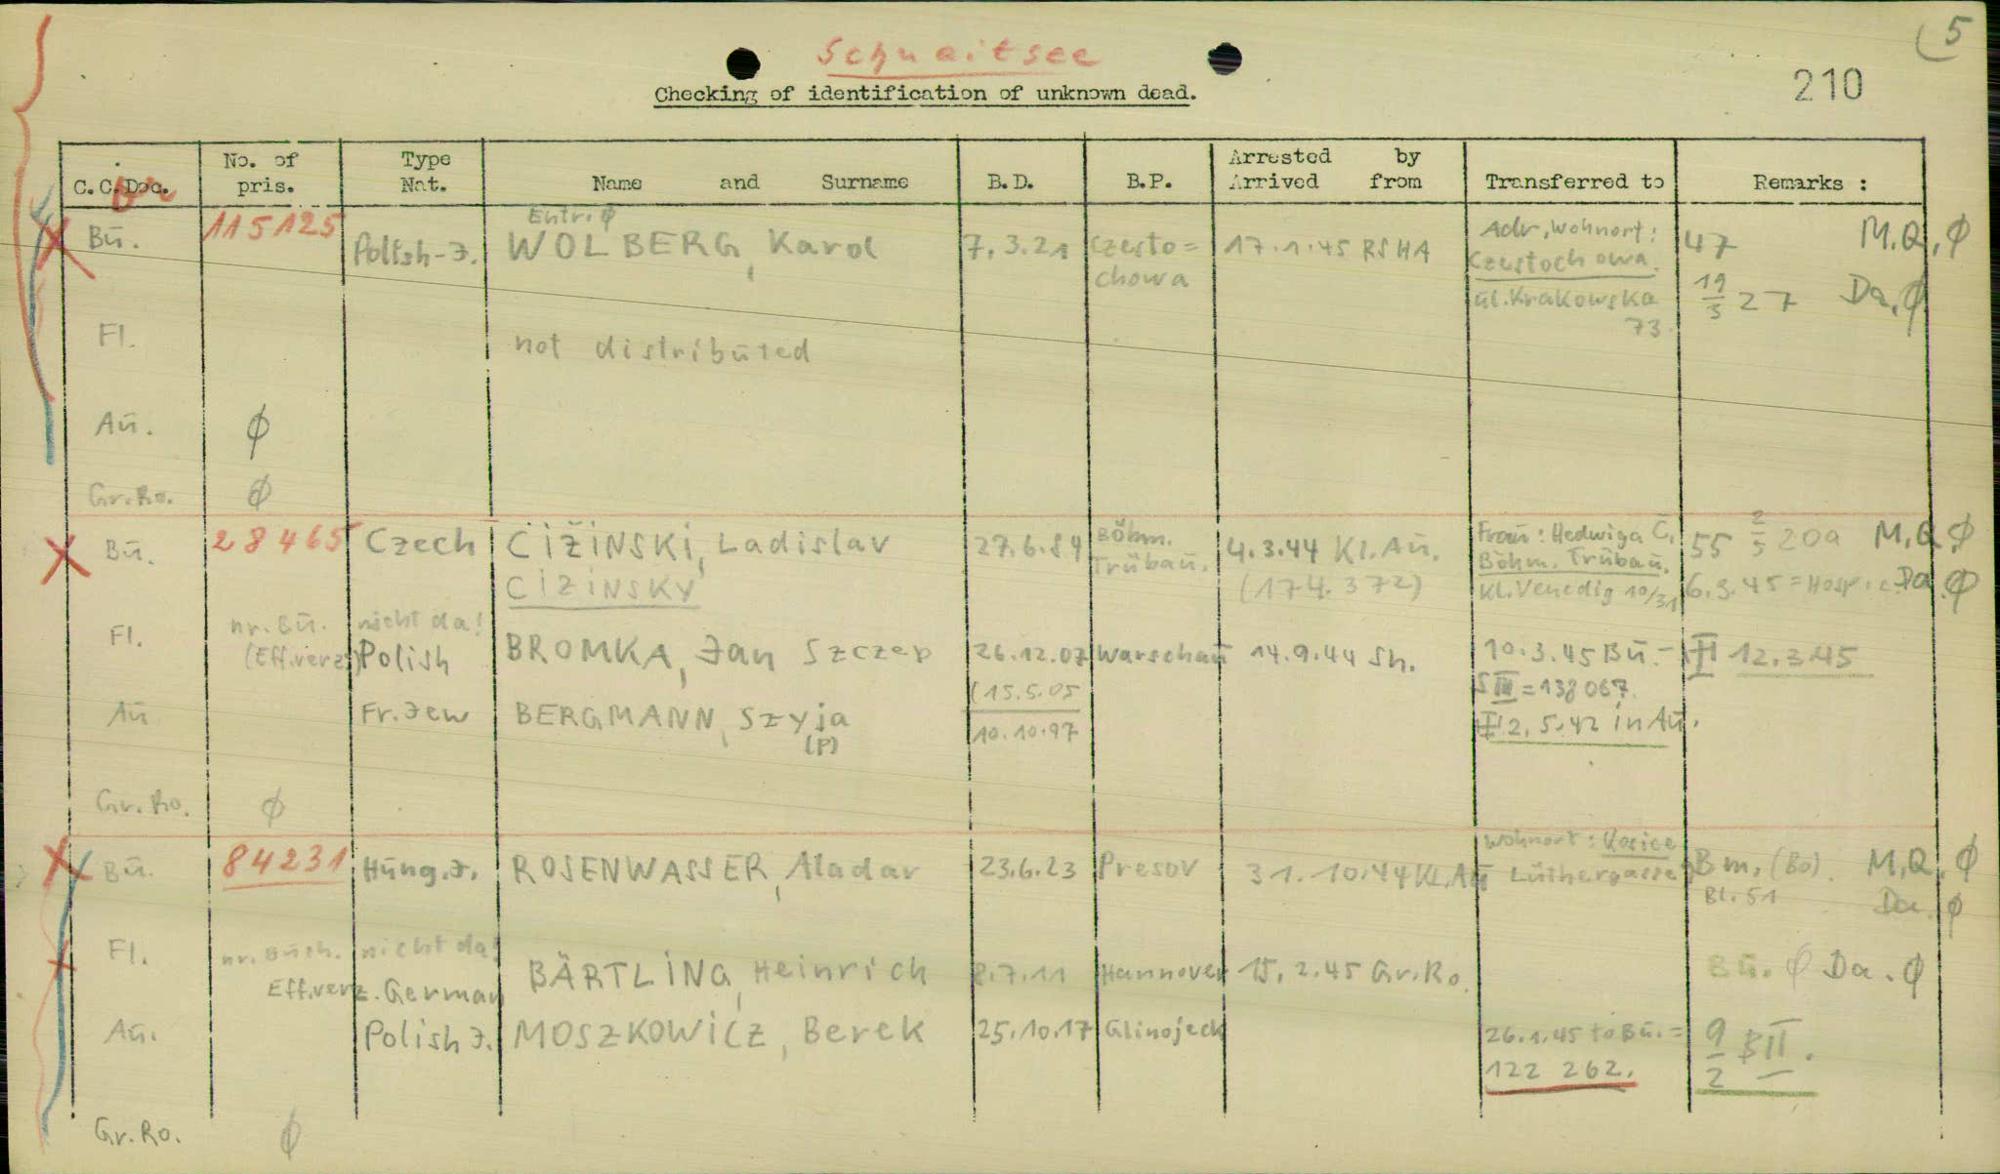 5
Schnaitsee
210
Checking of identification of unknown dead.
C.C.Doc. No. of pris. Type Nat. Name and Surname B.D. B.P. Arrested by Arrived from Transferred to Remarks :
Entr. ϕ
Bū. 115125 Polish-J. WOLBERG, Karol 7.3.21 Czesto= 17.1.45 RSHA Adr, Wohnort: 47 M.Q. ϕ
chowa Czestochowa.
ul. Krakowska 19/3 27 Da. ϕ
73.
Fl. not distributed
Aū. ϕ
Gr.Ro. ϕ
Bū. 28465 Czech ČIŽINSKI, Ladislav 27.6.89 Böhm. 4.3.44 Kl.Aū. Fraū: Hedwiga Č. 55 2/5 20a M.Q. ϕ
Trübaū. (174.372) Böhm. Trübaū.
CIZINSKY Kl.Venedig 10/31 6.3.45 = Hosp. Da. ϕ
nr. Bū. nicht da!
Fl. (Eff.verz.) Polish BROMKA, Jan Szczep 26.12.07 Warschaū 14.9.44 Sh. 10.3.45 Bū.- 12.3.45
(15.5.05 S III = 138067.
Aū Fr. Jew BERGMANN, Szyja 10.10.97 2.5.42 in Aū.
(P)
Gr.Ro. ϕ
Wohnort: Kosice
Bū. 84231 Hūng.J. ROSENWASSER, Aladar 23.6.23 Presov 31.10.44 Kl.Aū Lūthergasse Bm. (Bo). M.Q. ϕ
Bl.51 Da. ϕ
Fl. nr. Būch. nicht da!
Eff.verz. German BÄRTLING, Heinrich 8.7.11 Hannover 15.2.45 Gr.Ro. Bū. ϕ Da. ϕ
Aū. Polish J. MOSZKOWICZ, Berek 25.10.17 Glinojeck 26.1.45 to Bū. = 9/2 BII.
122 262.
Gr.Ro. ϕ